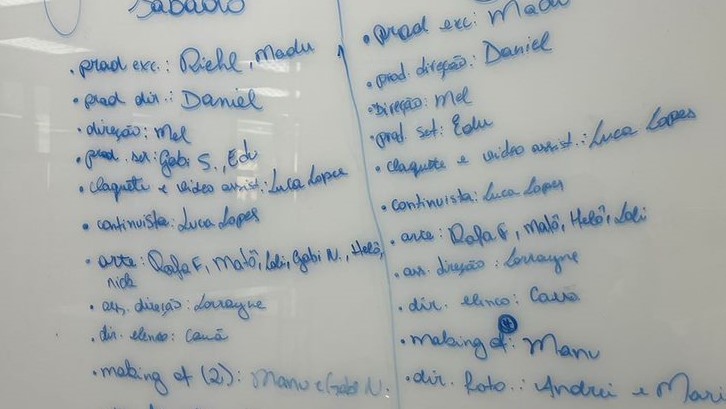 Sábado
• prod exc.: Riehl, Madu
• prod dir.: Daniel
• direção: Mel
• prod. set: Gabi S., Edu
• claquete e video assist.: Luca Lopes
• continuista: Luca Lopes
• arte: Rafa F, Matô, Loli, Gabi N., Helô,
nick
• ass. direção: Lorrayne
• dir. elenco: Cauã
• making of (2): Manu e Gabi N.
• prod exc: Madu
• prod. direção: Daniel
• Direção: Mel
prod. set: Edu
• claquete e video assist.: Luca Lopes
• continuista: Luca Lopes
• arte: Rafa F, Matô, Helô, Loli
• ass. direção: Lorrayne
• dir. elenco: Cauã
• making of: Manu
• dir. foto.: Andrei e Mari